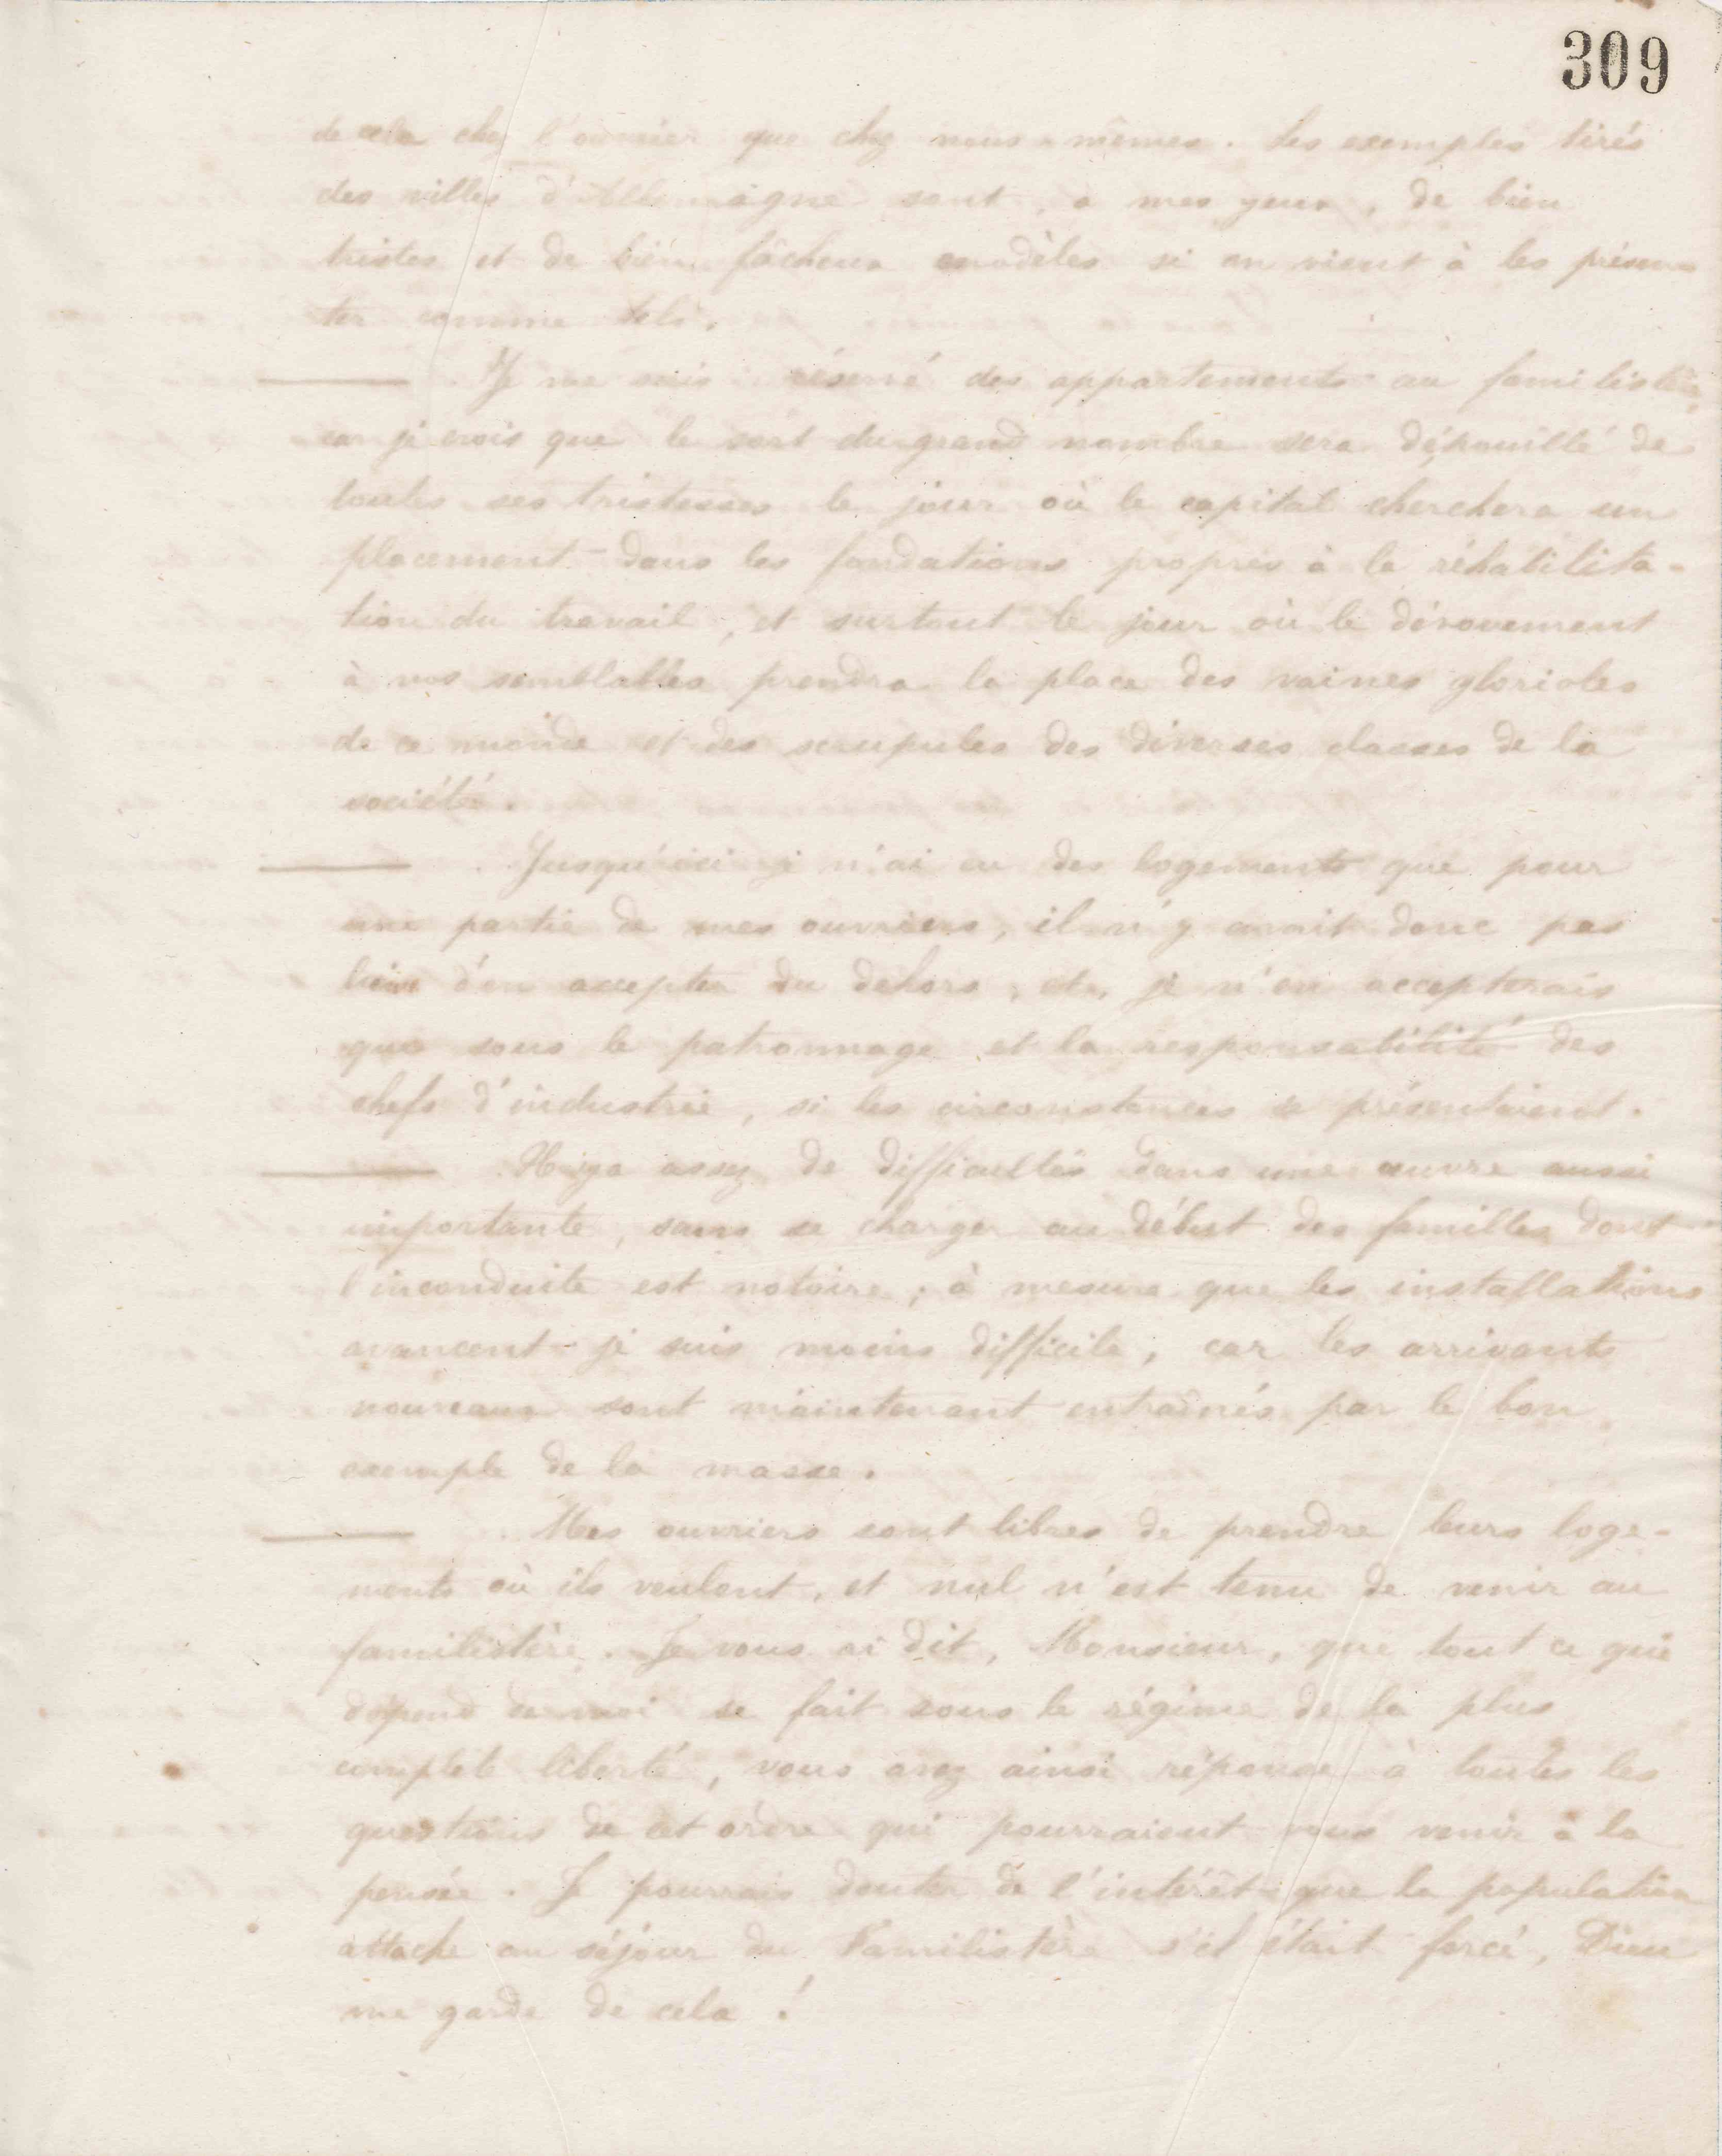 309
de cela chez l'ouvrier que chez nous-mêmes. Les exemples tirés
des villes d'Allemagne sont, à mes yeux, de bien
tristes et de bien fâcheux modèles si on vient à les présen
ter comme tels.
Je me suis réservé des appartements au familistère,
car je crois que le sort du grand nombre sera dépouillé de
toutes ses tristesses le jour où le capital cherchera un
placement dans les fondations propres à la réhabilita-
tion du travail, et surtout le jour où le dévouement
à nos semblables prendra la place des vaines glorioles
de ce monde et des scrupules des diverses classes de la
société.
Jusqu'ici je n'ai eu des logements que pour
une partie de mes ouvriers, il n'y avait donc pas
lieu d'en accepter du dehors, et je n'en accepterais
que sous le patronnage et la responsabilité des
chefs d'industrie, si les circonstances se présentaient.
Il y a assez de difficultés dans une œuvre aussi
importante, sans se charger au début des familles dont
l'inconduite est notoire; à mesure que les installations
avancent je suis moins difficile, car les arrivants
nouveaux sont maintenant entraînés par le bon
exemple de la masse.
Mes ouvriers sont libres de prendre leurs loge-
ments où ils veulent, et nul n'est tenu de venir au
familistère. Je vous ai dit, Monsieur, que tout ce qui
dépend de moi se fait sous le régime de la plus
complète liberté, vous avez ainsi réponse à toutes les
questions de cet ordre qui pourraient vous venir à la
pensée. Je pourrais douter de l'intérêt que la population
attache au séjour du Familistère s'il était forcé, Dieu
me garde de cela !